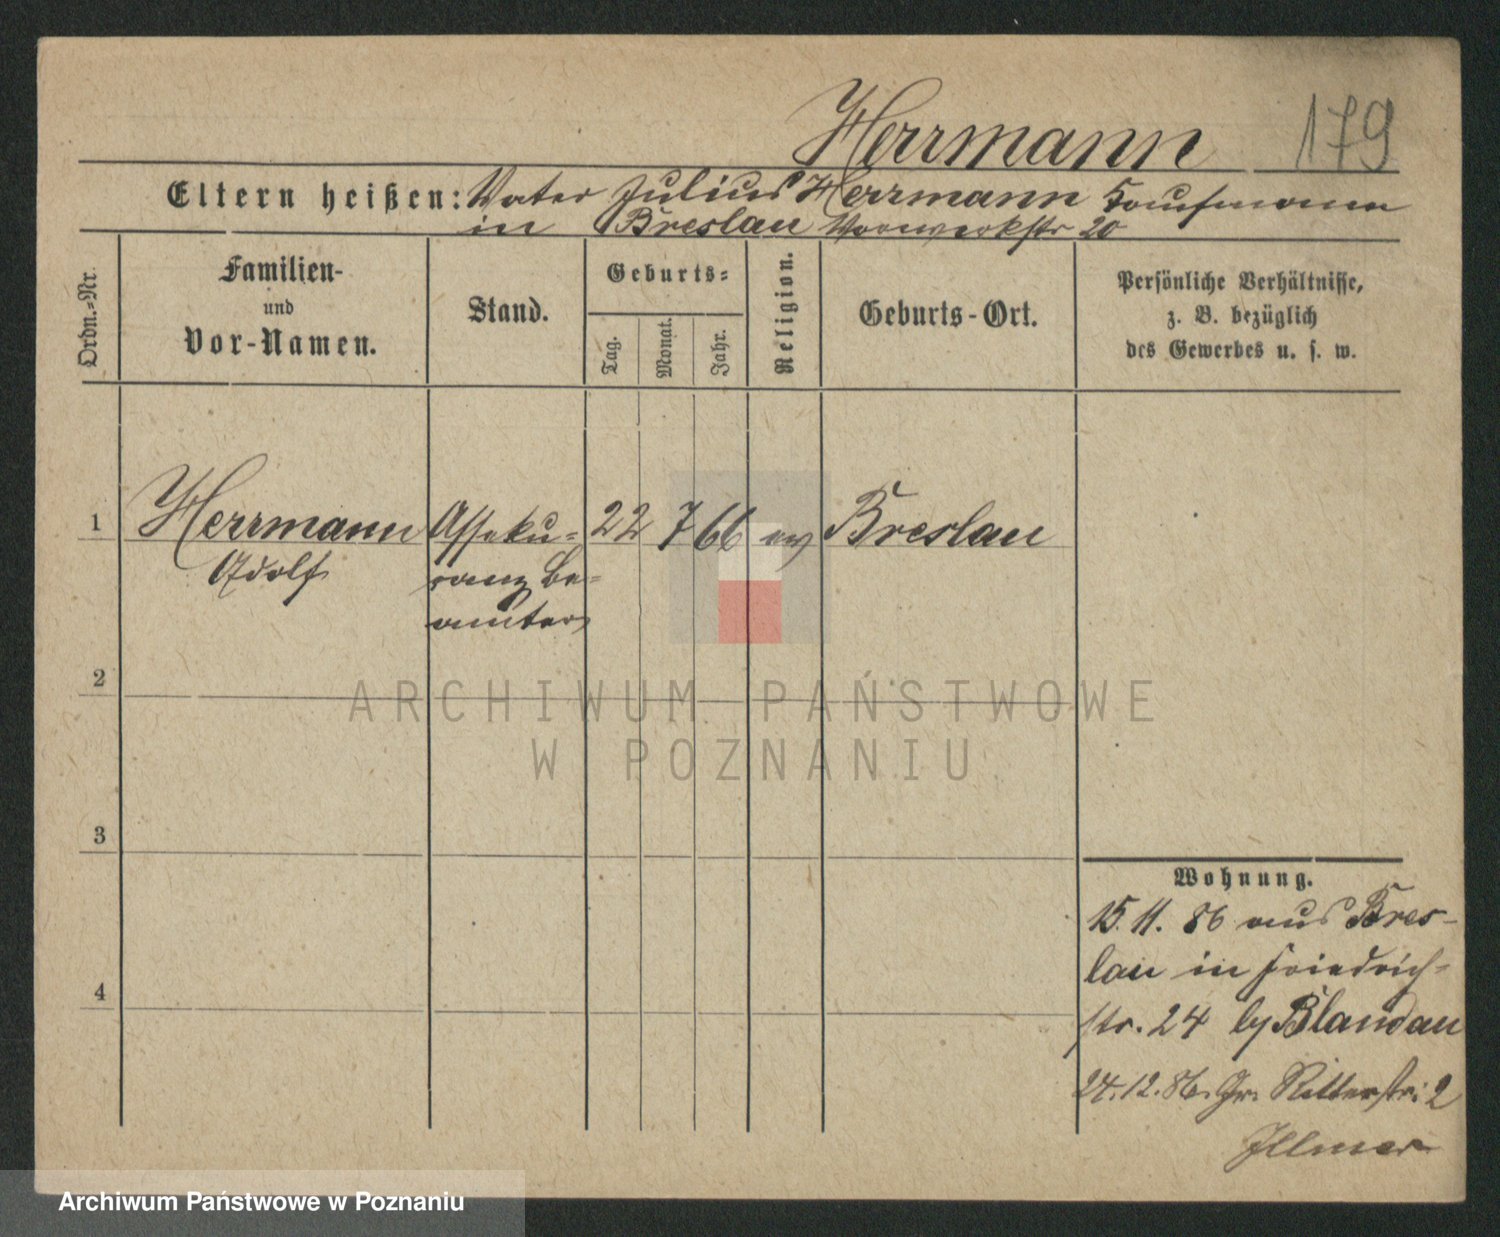 Herrmann 179
Eltern heißen: Vater Julius Herrmann Kaufmann
in Breslau Vorwerkstr 20
Ordn.-Nr.
Familien-
und
Vor-Namen.
Stand.
Geburts-
Tag.
Monat.
Jahr.
Religion.
Geburts-Ort.
Persönliche Verhältnisse,
z. B. bezüglich
des Gewerbes u. s. w.
1 Herrmann Asseku- 22 7 66 ev Breslau
Adolf ranz Be-
amter
2
ARCHIWUM PAŃSTWOWE
W POZNANIU
3
Wohnung.
15. 11. 86 aus Bres-
lau in Friedrich-
4
str. 24 by Blandau
24.12.86. Gr. Ritterstr. 2
Illmer
Archiwum Państwowe w Poznaniu